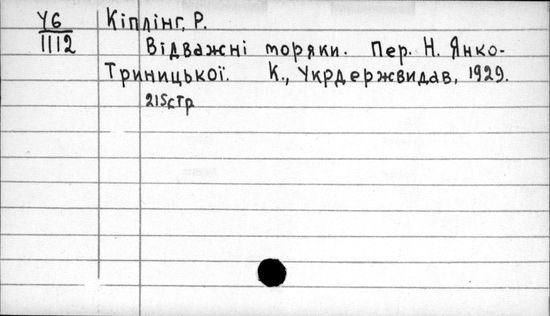 У6
1112
Кіплінг, Р.
Відважні моряки. Пер. Н. Янко-
Триницької. К., Укрдержвидав, 1929.
215стр